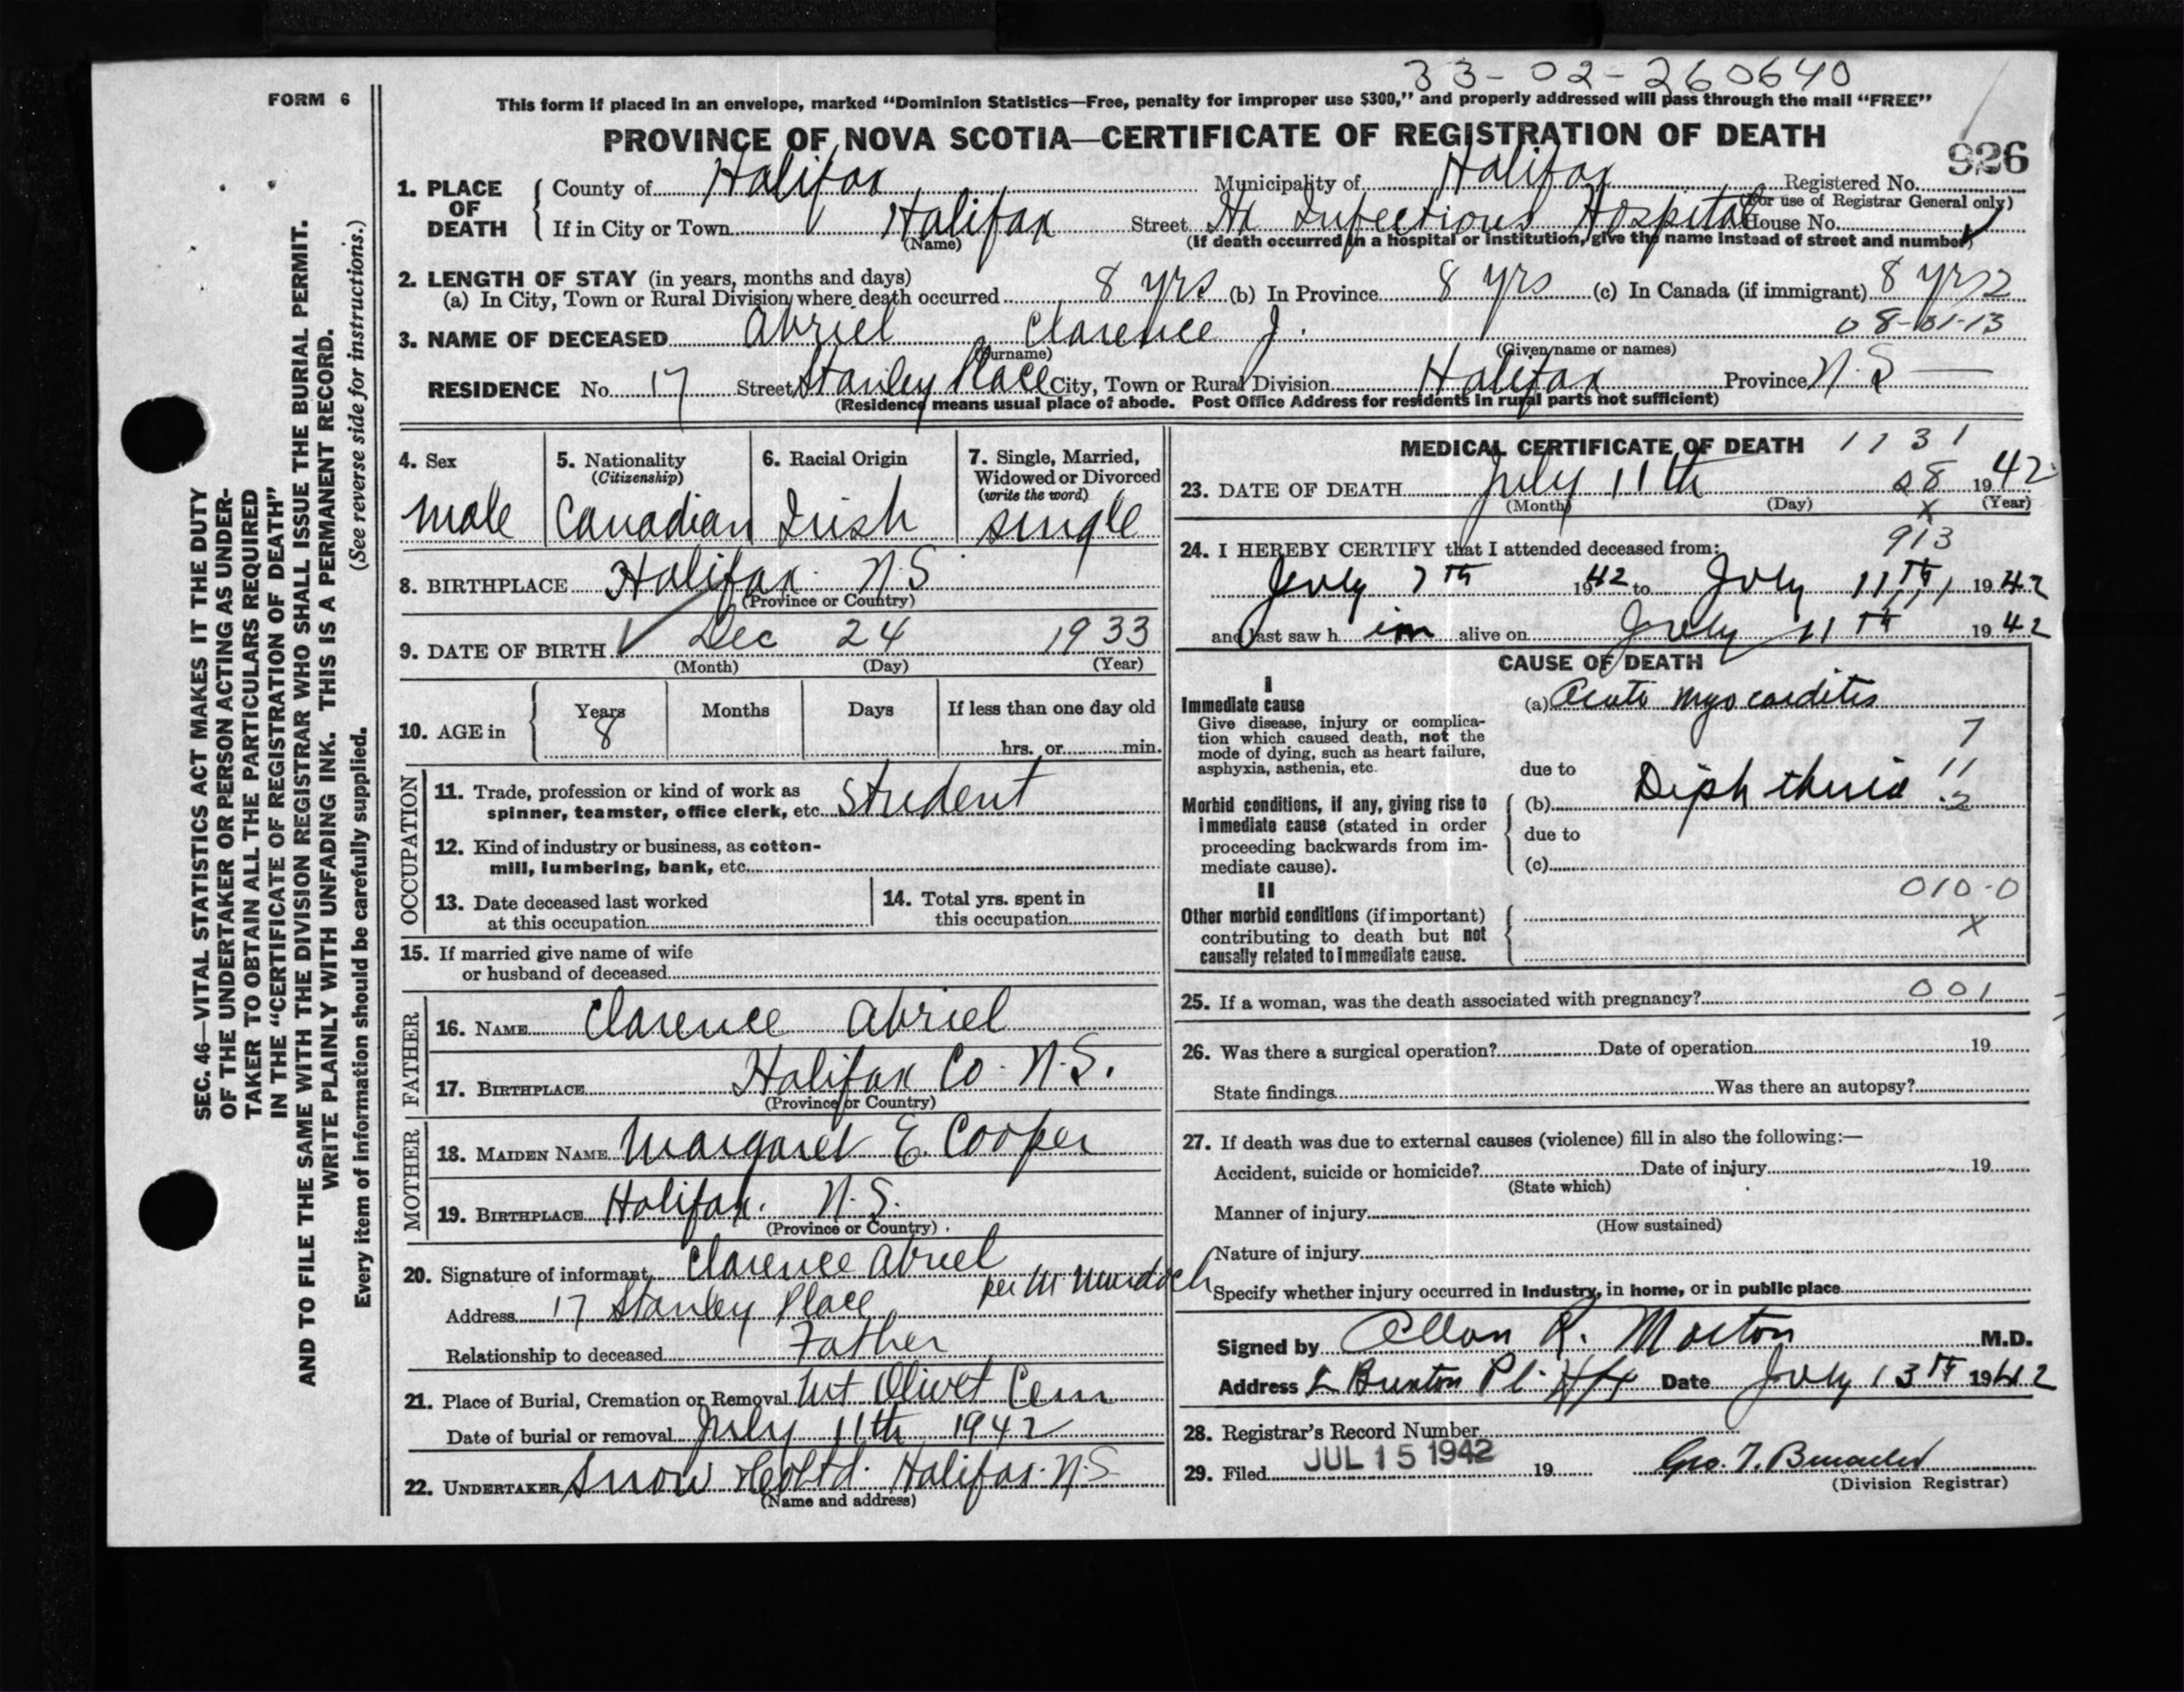 33-02-260640
FORM 6
This form if placed in an envelope, marked “Dominion Statistics—Free, penalty for improper use $300,” and properly addressed will pass through the mail “FREE”
PROVINCE OF NOVA SCOTIA—CERTIFICATE OF REGISTRATION OF DEATH
926
1. PLACE OF DEATH
County of Halifax Municipality of Halifax Registered No.
(For use of Registrar General only)
If in City or Town Halifax Street Hx Infectious Hospital House No.
(Name) (If death occurred in a hospital or institution, give the name instead of street and number)
2. LENGTH OF STAY (in years, months and days)
(a) In City, Town or Rural Division where death occurred 8 yrs (b) In Province 8 yrs (c) In Canada (if immigrant) 8 yrs
3. NAME OF DECEASED Abriel Clarence J. 08-01-13
(Surname) (Given name or names)
RESIDENCE No. 17 Street Stanley Place City, Town or Rural Division Halifax Province N.S
(Residence means usual place of abode. Post Office Address for residents in rural parts not sufficient)
4. Sex
male
5. Nationality
(Citizenship)
Canadian
6. Racial Origin
Irish
7. Single, Married,
Widowed or Divorced
(write the word)
single
8. BIRTHPLACE Halifax N.S
(Province or Country)
9. DATE OF BIRTH Dec 24 1933
(Month) (Day) (Year)
10. AGE in
Years Months Days If less than one day old
8
hrs. or min.
OCCUPATION
11. Trade, profession or kind of work as
spinner, teamster, office clerk, etc. Student
12. Kind of industry or business, as cotton-
mill, lumbering, bank, etc.
13. Date deceased last worked
at this occupation
14. Total yrs. spent in
this occupation
15. If married give name of wife
or husband of deceased
FATHER
16. NAME Clarence Abriel
17. BIRTHPLACE Halifax Co. N.S.
(Province or Country)
MOTHER
18. MAIDEN NAME Margaret E. Cooper
19. BIRTHPLACE Halifax. N.S.
(Province or Country)
20. Signature of informant Clarence Abriel
per M Murdoch
Address 17 Stanley Place
Relationship to deceased Father
21. Place of Burial, Cremation or Removal Mt Olivet Cem
Date of burial or removal July 11th 1942
22. UNDERTAKER Snow & Co Ltd. Halifax. N.S
(Name and address)
MEDICAL CERTIFICATE OF DEATH 1131
23. DATE OF DEATH July 11th 28 1942
(Month) (Day) x (Year)
24. I HEREBY CERTIFY that I attended deceased from: 913
July 7th 1942 to July 11th 1942
and last saw h im alive on July 11th 1942
CAUSE OF DEATH
I
Immediate cause
Give disease, injury or complica-
tion which caused death, not the
mode of dying, such as heart failure,
asphyxia, asthenia, etc.
(a) Acute myocarditis
7
due to
11
Morbid conditions, if any, giving rise to
immediate cause (stated in order
proceeding backwards from im-
mediate cause).
(b) Diphtheria
due to
(c)
II
010-0
Other morbid conditions (if important)
contributing to death but not
causally related to immediate cause.
x
25. If a woman, was the death associated with pregnancy? 001
26. Was there a surgical operation? Date of operation 19
State findings Was there an autopsy?
27. If death was due to external causes (violence) fill in also the following:—
Accident, suicide or homicide? Date of injury 19
(State which)
Manner of injury
(How sustained)
Nature of injury
Specify whether injury occurred in industry, in home, or in public place
Signed by Allan R. Morton M.D.
Address Pl. Hfx Date July 13th 1942
28. Registrar’s Record Number
29. Filed JUL 15 1942 19
(Division Registrar)
SEC. 46—VITAL STATISTICS ACT MAKES IT THE DUTY
OF THE UNDERTAKER OR PERSON ACTING AS UNDER-
TAKER TO OBTAIN ALL THE PARTICULARS REQUIRED
IN THE “CERTIFICATE OF REGISTRATION OF DEATH”
AND TO FILE THE SAME WITH THE DIVISION REGISTRAR WHO SHALL ISSUE THE BURIAL PERMIT.
WRITE PLAINLY WITH UNFADING INK. THIS IS A PERMANENT RECORD.
Every item of information should be carefully supplied. (See reverse side for instructions.)